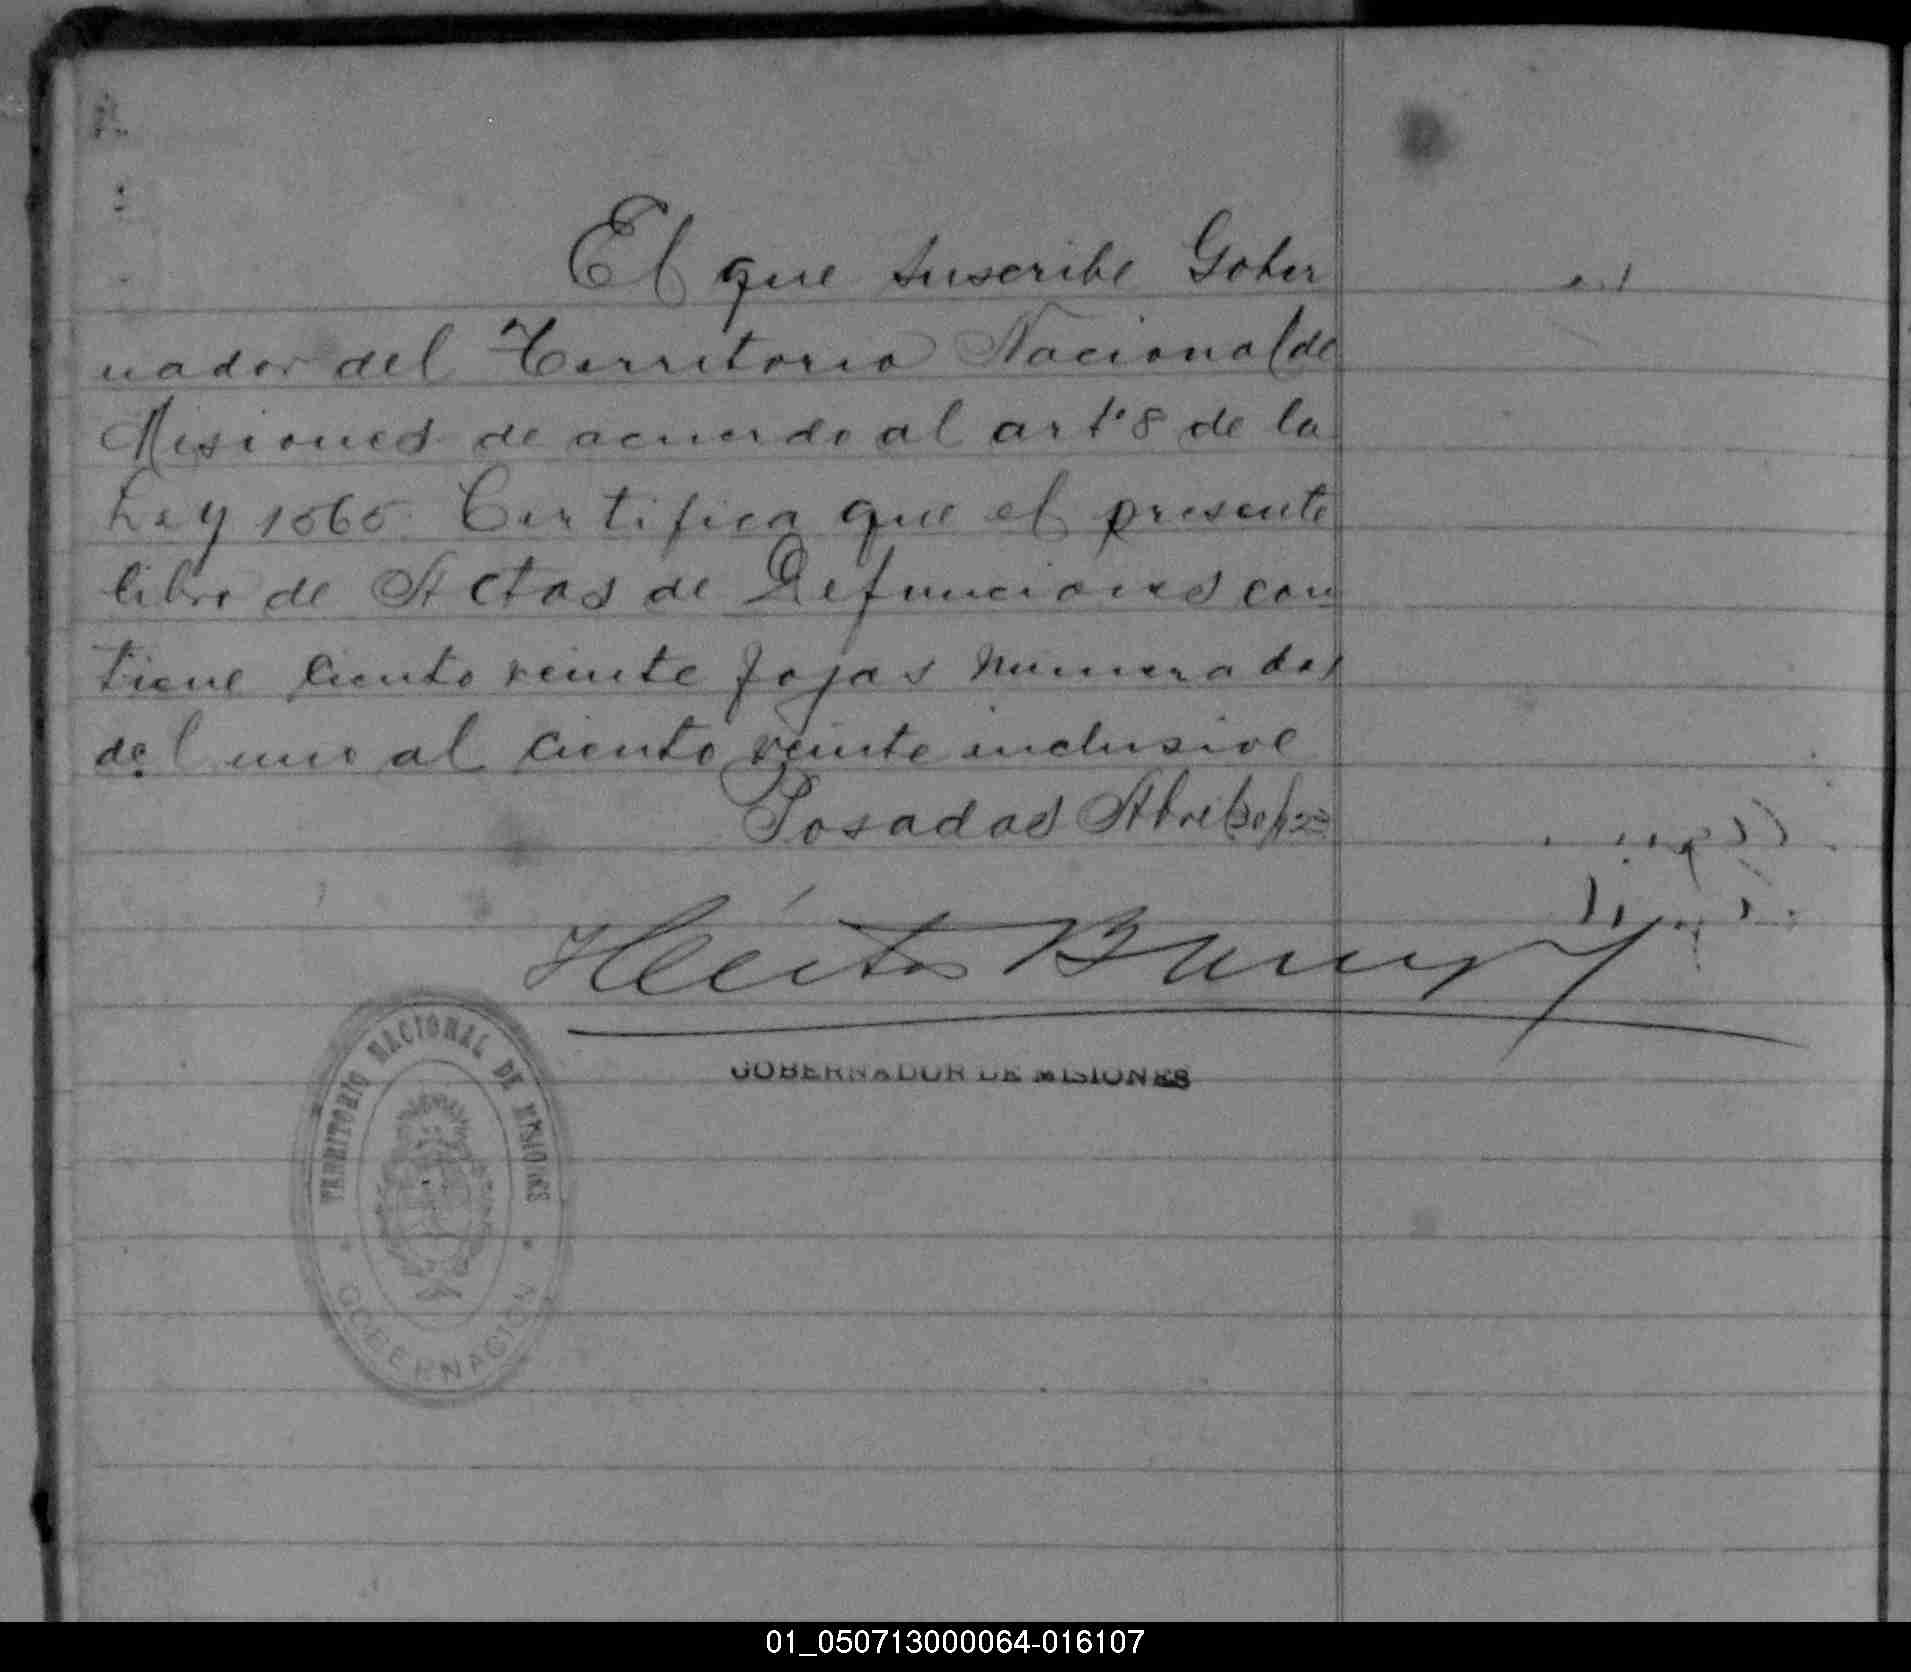 El que suscribe Gober
nador del Territorio Nacional de
Misiones de acuerdo al art° 8 de la
Ley 1565 Certifica que el presente
libro de Actas de Defunciones con
tiene ciento veinte fojas numeradas
del uno al ciento veinte inclusive
Posadas Abril 30/923
Héctor Barreyro
GOBERNADOR DE MISIONES
TERRITORIO NACIONAL DE MISIONES
GOBERNACION
01_050713000064-016107